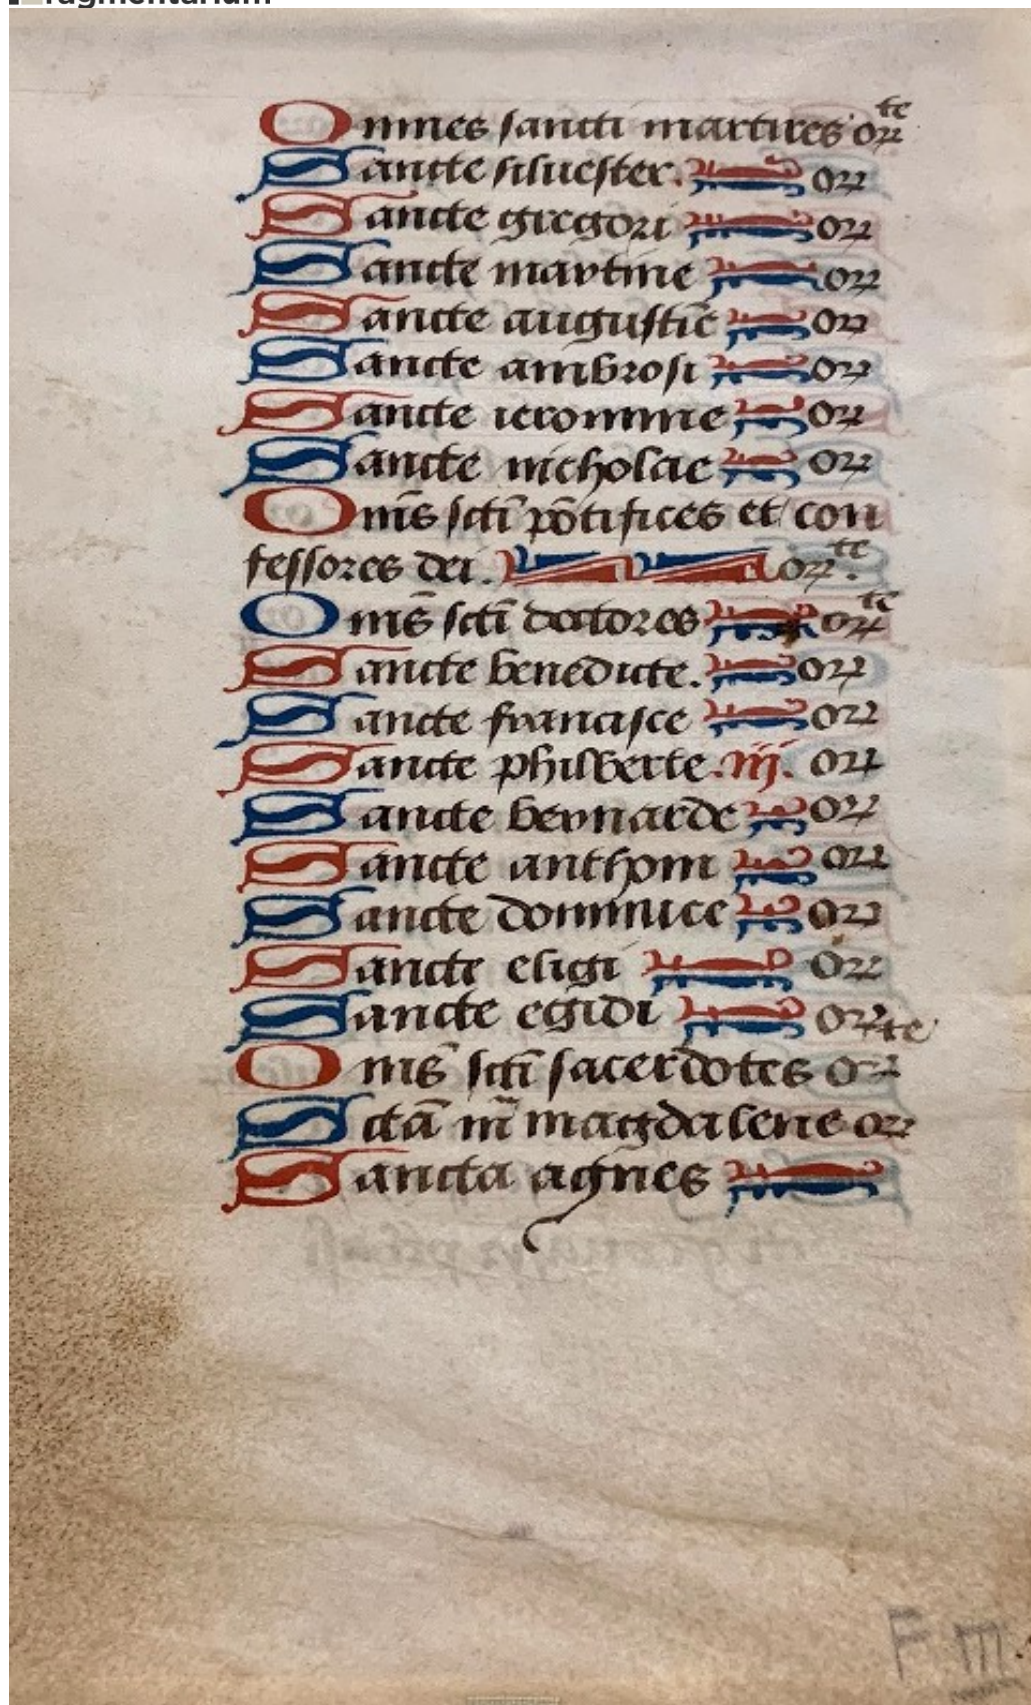 Omnes sancti martires orate
Sancte siluester. or
Sancte gregori or
Sancte martine or
Sancte augustīe or
Sancte ambrosi or
Sancte ieronime or
Sancte nicholae or
Om̄s scti pōtifices et con
fessores dei. orte.
Om̄s scti doctores orte
Sancte benedicte. or
Sancte francisce or
Sancte philberte .iij. or
Sancte bernarde or
Sancte anthoni or
Sancte dominice or
Sancte eligi or
Sancte egidi or
Om̄s scti sacerdotes orte
Sctā m̄ magdalene or
Sancta agnes
F m.